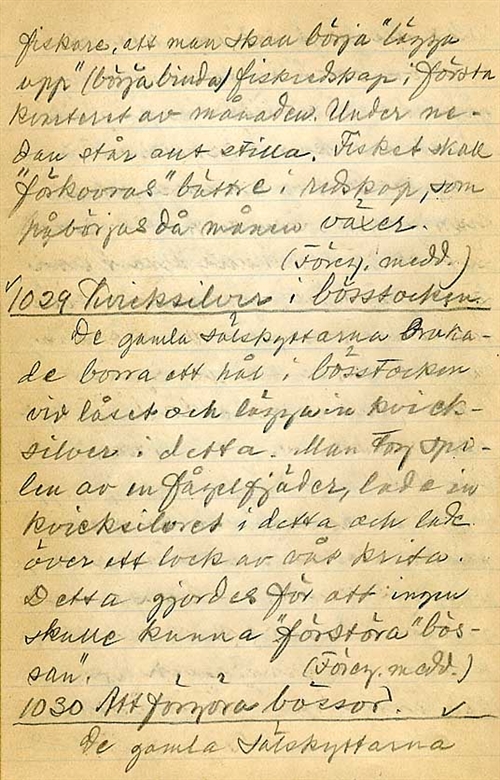 fiskare, att man skall börja "lägga
upp" (börja binda) fiskredskap i första
kvarteret av månaden. Under ne-
dan står allt stilla. Fisket skall
"förkovras" bättre i redskap, som
påbörjas då månen växer.
(Föreg. medd.)
1029 Kvicksilver i bösstocken
De gamla sälskyttarna bruka-
de borra ett hål i bösstocken
vid låset och lägga in kvick-
silver i detta. Man tog spo-
len av en fågelfjäder, lade in
kvicksilvret i detta och lade
över ett lock av våt krita.
Detta gjordes för att ingen
skulle kunna "förstöra" bös-
san". (Föreg. medd.)
1030 Att förgöra bössor. ✓
De gamla sälskyttarna